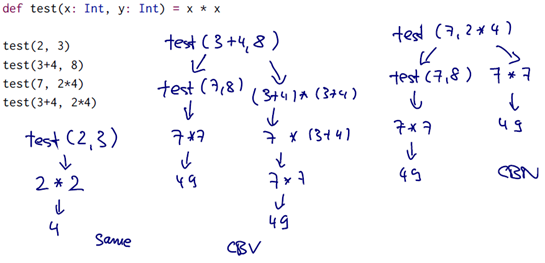 def test(x: Int, y: Int) = x * x
test(2, 3)
test(3+4, 8)
test(7, 2*4)
test(3+4, 2*4)
test (2,3)
2 * 2
4
same
test (3+4,8)
test (7,8) (3+4) * (3+4)
7*7 7 * (3+4)
49 7 * 7
49
CBV
test (7, 2*4)
test (7,8) 7 * 7
7*7 49
49 CBN